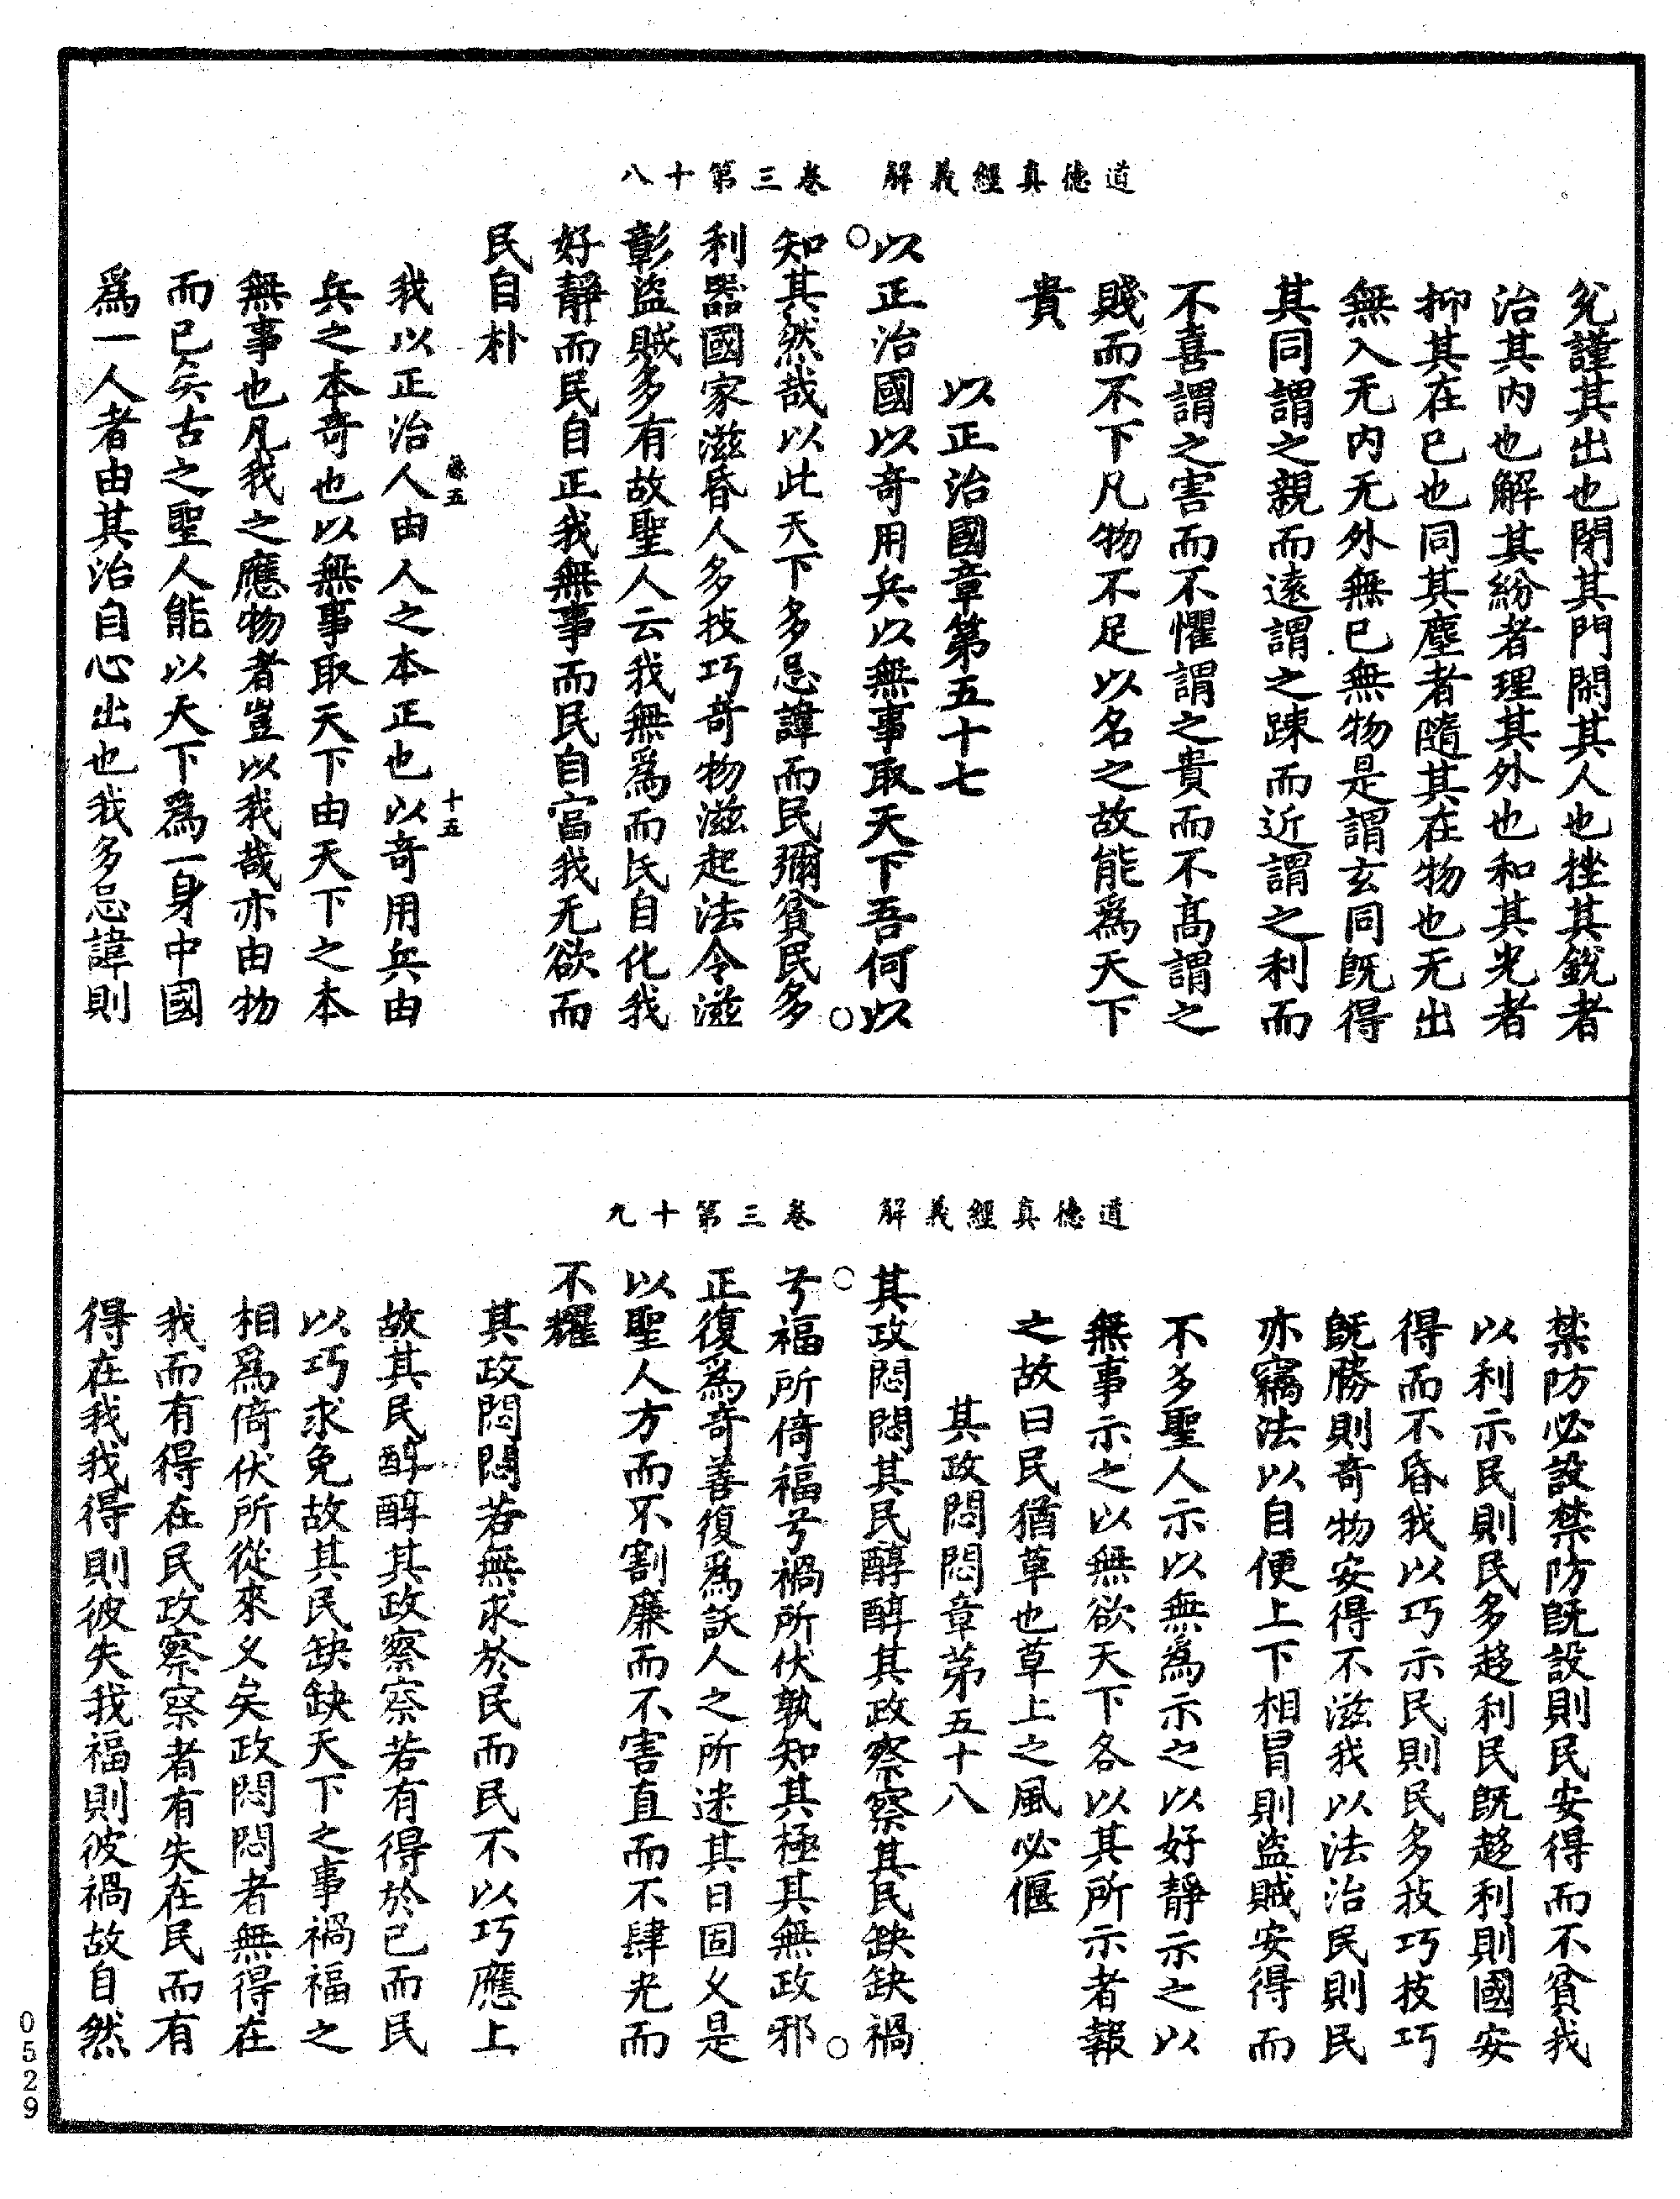 道德真經義解　卷三第十八
兊謹其出也閉其門閑其人也挫其銳者
治其内也解其紛者理其外也和其光者
抑其在已也同其塵者隨其在物也无出
無入无内无外無已無物是謂玄同既得
其同謂之親而遠謂之踈而近謂之利而
不喜謂之害而不懼謂之貴而不高謂之
賤而不下凡物不足以名之故能爲天下
貴
以正治國章第五十七
○以正治國以奇用兵以無事取天下吾何以
知其然哉以此天下多忌諱而民彌貧民多○
利器國家滋昏人多技巧奇物滋起法令滋
彰盜賊多有故聖人云我無爲而民自化我
好靜而民自正我無事而民自富我无欲而
民自朴
五　十五
我以正治人由人之本正也以奇用兵由
兵之本奇也以無事取天下由天下之本
無事也凡我之應物者豈以我哉亦由物
而已矣古之聖人能以天下爲一身中國
爲一人者由其治自心出也我多忌諱則
道德真經義解　卷三第十九
禁防必設禁防旣設則民安得而不貧我
以利示民則民多趍利民旣趍利則國安
得而不昏我以巧示民則民多技巧技巧
旣勝則奇物安得不滋我以法治民則民
亦竊法以自便上下相冒則盜賊安得而
不多聖人示以無爲示之以好靜示之以
無事示之以無欲天下各以其所示者報
之故曰民猶草也草上之風必偃
其政悶悶章苐五十八
其政悶悶其民醇醇其政察察其民缺缺禍
○兮福所倚福兮禍所伏孰知其極其無政邪○
正復爲奇善復爲訞人之所迷其日固久是
以聖人方而不割廉而不害直而不肆光而
不耀
其政悶悶若無求於民而民不以巧應上
故其民醇醇其政察察若有得於已而民
以巧求免故其民缺缺天下之事禍福之
相爲倚伏所從來久矣政悶悶者無得在
我而有得在民政察察者有失在民而有
得在我我得則彼失我福則彼禍故自然
0529